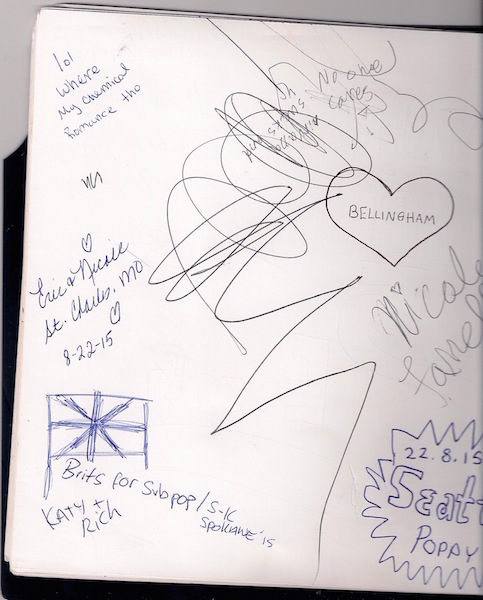 lol
Where
My Chemical
Romance tho
No one
cares
BELLINGHAM
Eric & Nicole
St. Charles, MO
8-22-15
Nicole
22.8.15
Seatt
POPPY
Brits for Subpop/S-K
SPOKANE '15
KATY +
Rich